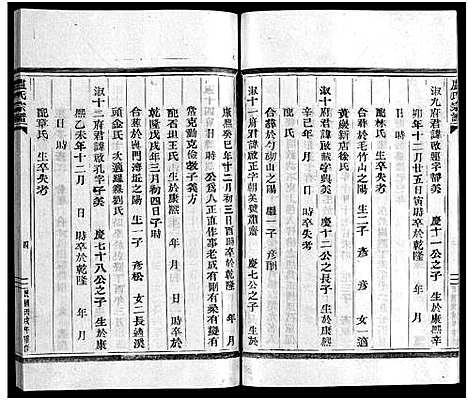 盧氏宗譜
淑九府君諱啟麗字靜美 慶十一公之子 生於康熙辛
卯年十二月廿五日寅時卒於乾隆 年 月
日 時
配林氏 生卒失考
合葬於毛竹山之陽 生一子 彥 女一適
黃巖新店徐氏
淑十府君諱啟 字典美 慶十二公之子 生於康熙
辛巳年 月 日 時卒失考
合葬於勺砌山之陽 繼一子 彥
淑十一府君諱啟正字朝美號肅齋 慶七公之子 生於
康熙癸巳年十二月初三日酉時卒於乾隆 年 月
日 時 公為人正直作事老成有剛有柔有變有
常克勤克儉
配石坦王氏 生於康熙 年 月 日 時卒於
乾隆戊戌年三月初四日子時
合葬於奧門灣坵之陽 生一子 彥松 女二長適溪
頭金氏 次適 劉氏
淑十二府君諱啟孔字子美 慶七十八公之子 生於康
熙乙未年十二月 日 時卒於乾隆 年 月
日 時
配章氏 生卒失考
四